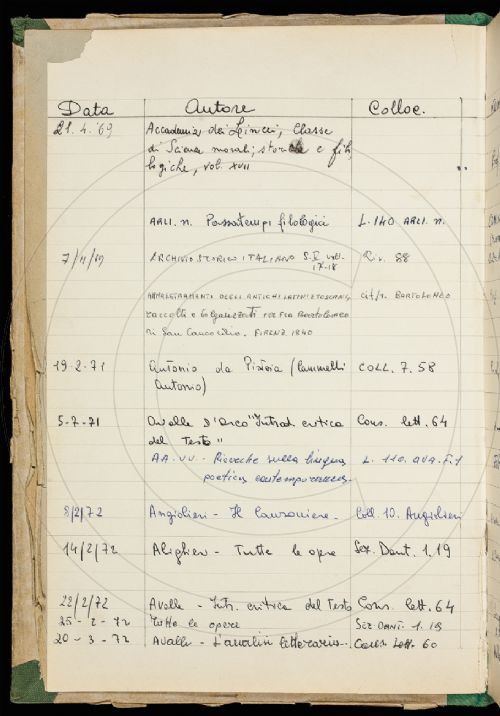 Data Autore Colloc.
21. 4. '69 Accademia dei Lincei, Classe
di Scienze morali, storiche e filo
logiche, vol. XVII
ARLI. n. Passatempi filologici L. 140. ARLI. n.
7/11/69 ARCHIVIO STORICO ITALIANO S. V voll. Riv. 88
17-18
AMMAESTRAMENTI DEGLI ANTICHI LATINI E TOSCANI, cit/r. BARTOLOMEO
raccolti e volgarizzati per fra Bartolomeo
di San Concordio. FIRENZE 1840
19-2-71 Antonio da Pistoia (Cammelli COLL. 7. 58
Antonio)
5-7-71 Avalle D'Arco "Introd. critica Cons. lett. 64
del Testo"
AA.VV. - Ricerche sulla lingua L. 110. AVA. F. 1
poetica contemporanea.
8/2/72 Angiolieri - Il Canzoniere. Coll. 10. Angiolieri
14/2/72 Alighieri - Tutte le opere Sez. Dant. 1.19
22/2/72 Avalle - Intr. critica del Testo Cons. lett. 64
25-2-72 Tutte le opere Sez. DANT. 1.19
20-3-72 Avalle - L'analisi letteraria. Cons. Lett. 60